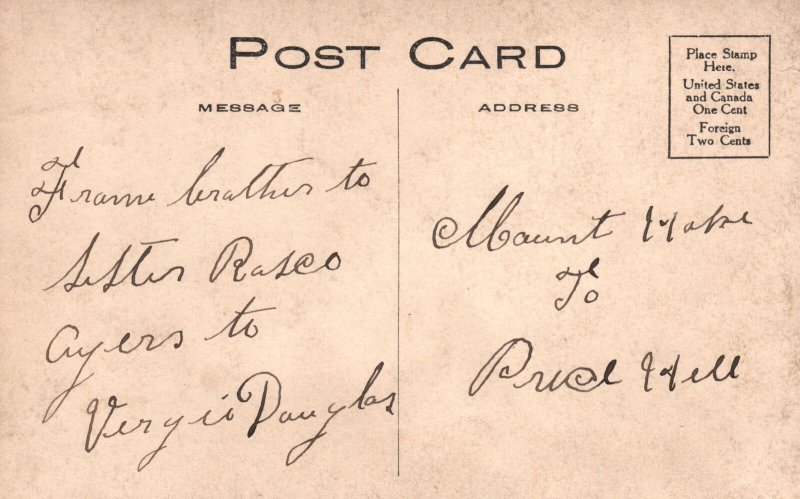 POST CARD
MESSAGE
ADDRESS
Place Stamp
Here.
United States
and Canada
One Cent
Foreign
Two Cents
Frome brother to
sister Rasco
ayers to
Vergie Douglas
Mount Hope
To
Hill